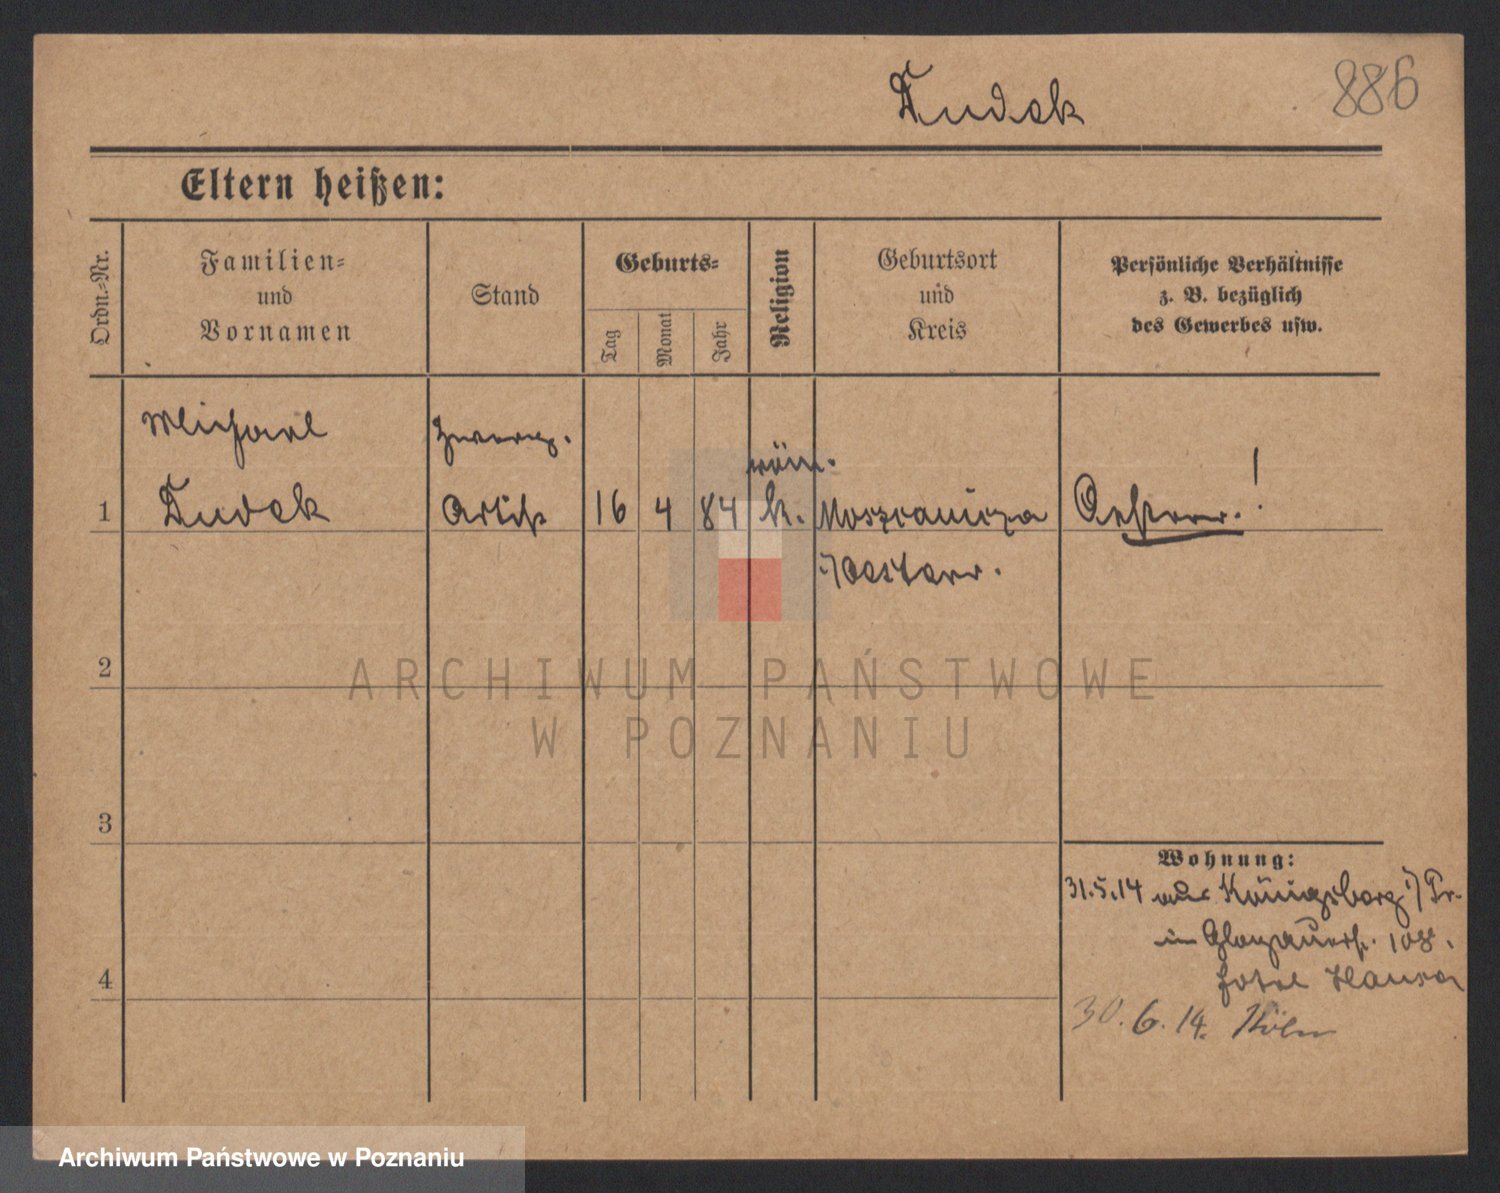 Dudek
886
Eltern heißen:
Ordn.-Nr.
Familien-
und
Vornamen
Stand
Geburts-
Tag
Monat
Jahr
Religion
Geburtsort
und
Kreis
Persönliche Verhältnisse
z. B. bezüglich
des Gewerbes usw.
Michael
Zwerg.
röm.
1 Dudek Artist 16 4 84 k. Moszcanicza Oesterr.!
i/Oesterr.
2
ARCHIWUM PAŃSTWOWE
W POZNANIU
3
Wohnung:
31.5.14 aus Königsberg i/Pr.
in Glogauerstr. 108.
Hotel Hansa
4
30.6.14. Köln
Archiwum Państwowe w Poznaniu